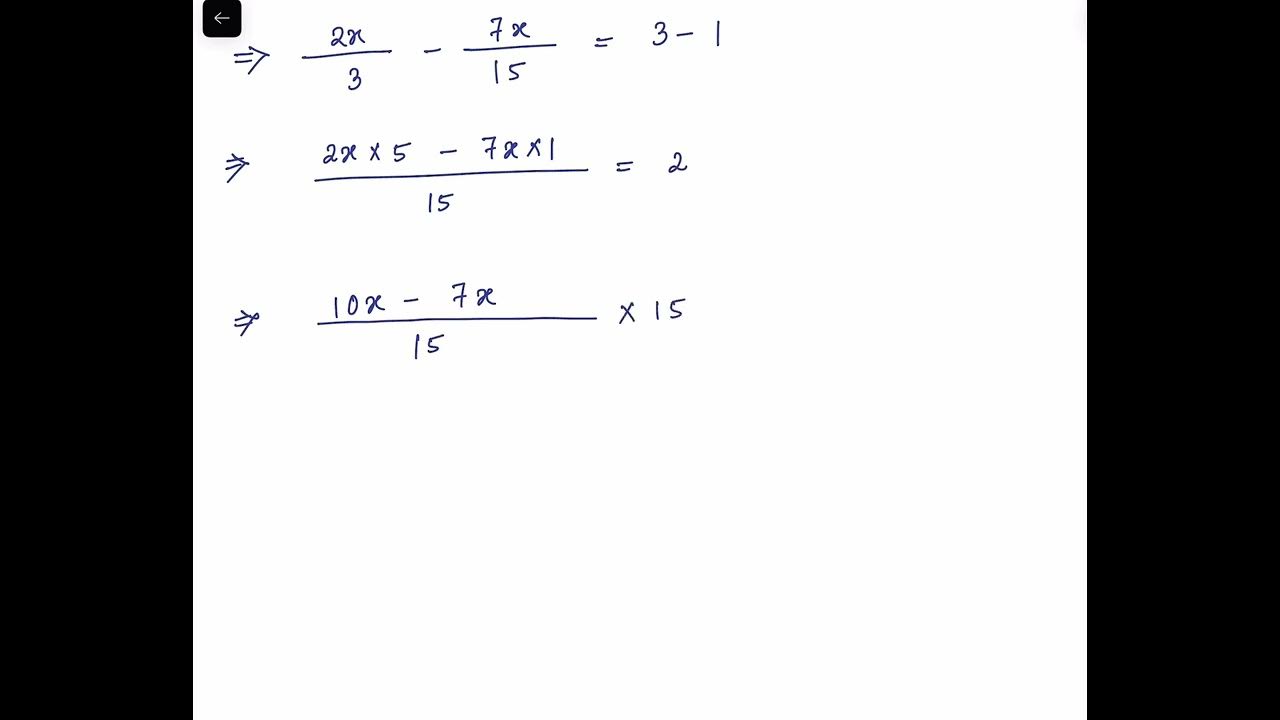 ⇒ 2x/3 - 7x/15 = 3 - 1
⇒ (2x × 5 - 7x × 1)/15 = 2
⇒ (10x - 7x)/15 × 15